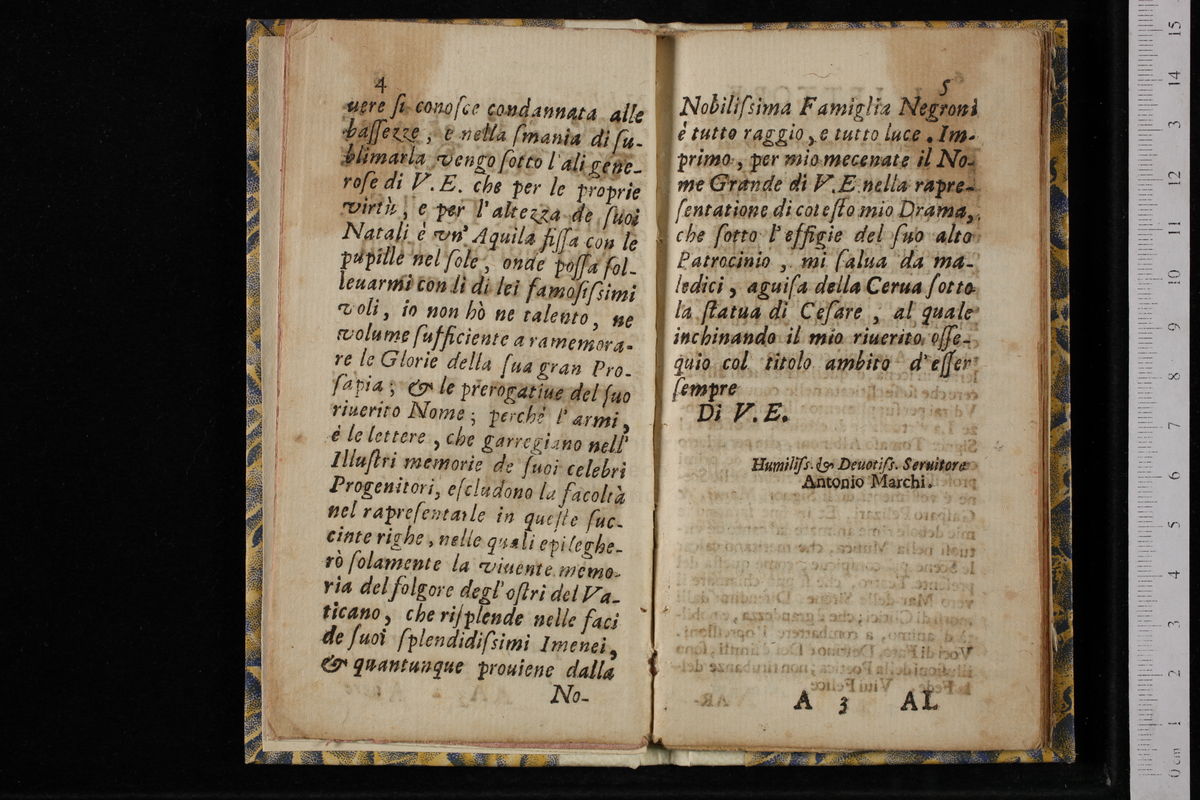 4
uere ſi conoſce condannata alle
baſſezze, e nella ſmania di ſu-
blimarla vengo ſotto l'ali gene-
roſe di V. E. che per le proprie
virtù, e per l'altezza de ſuoi
Natali è vn' Aquila fiſſa con le
pupille nel ſole, onde poſſa ſol-
leuarmi con li di lei famoſiſsimi
voli, io non hò ne talento, ne
volume ſufficiente a ramemora-
re le Glorie della ſua gran Pro-
ſapia; & le prerogatiue del ſuo
riuerito Nome; perchè l'armi,
è le lettere, che garregiano nell'
Illuſtri memorie de ſuoi celebri
Progenitori, eſcludono la facoltà
nel rapreſentarle in queſte ſuc-
cinte righe, nelle quali epileghe-
rò ſolamente la viuente memo-
ria del folgore degl'oſtri del Va-
ticano, che riſplende nelle faci
de ſuoi ſplendidiſsimi Imenei,
& quantunque prouiene dalla
No-
5
Nobiliſsima Famiglia Negroni
è tutto raggio, e tutto luce. Im-
primo, per mio mecenate il No-
me Grande di V. E. nella rapre-
ſentatione di coteſto mio Drama,
che ſotto l'effigie del ſuo alto
Patrocinio, mi ſalua da ma-
ledici, aguiſa della Cerua ſotto
la ſtatua di Ceſare, al quale
inchinando il mio riuerito oſſe-
quio col titolo ambito d'eſſer
ſempre
Di V. E.
Humiliſs. & Deuotiſs. Seruitore
Antonio Marchi.
A 3 AL